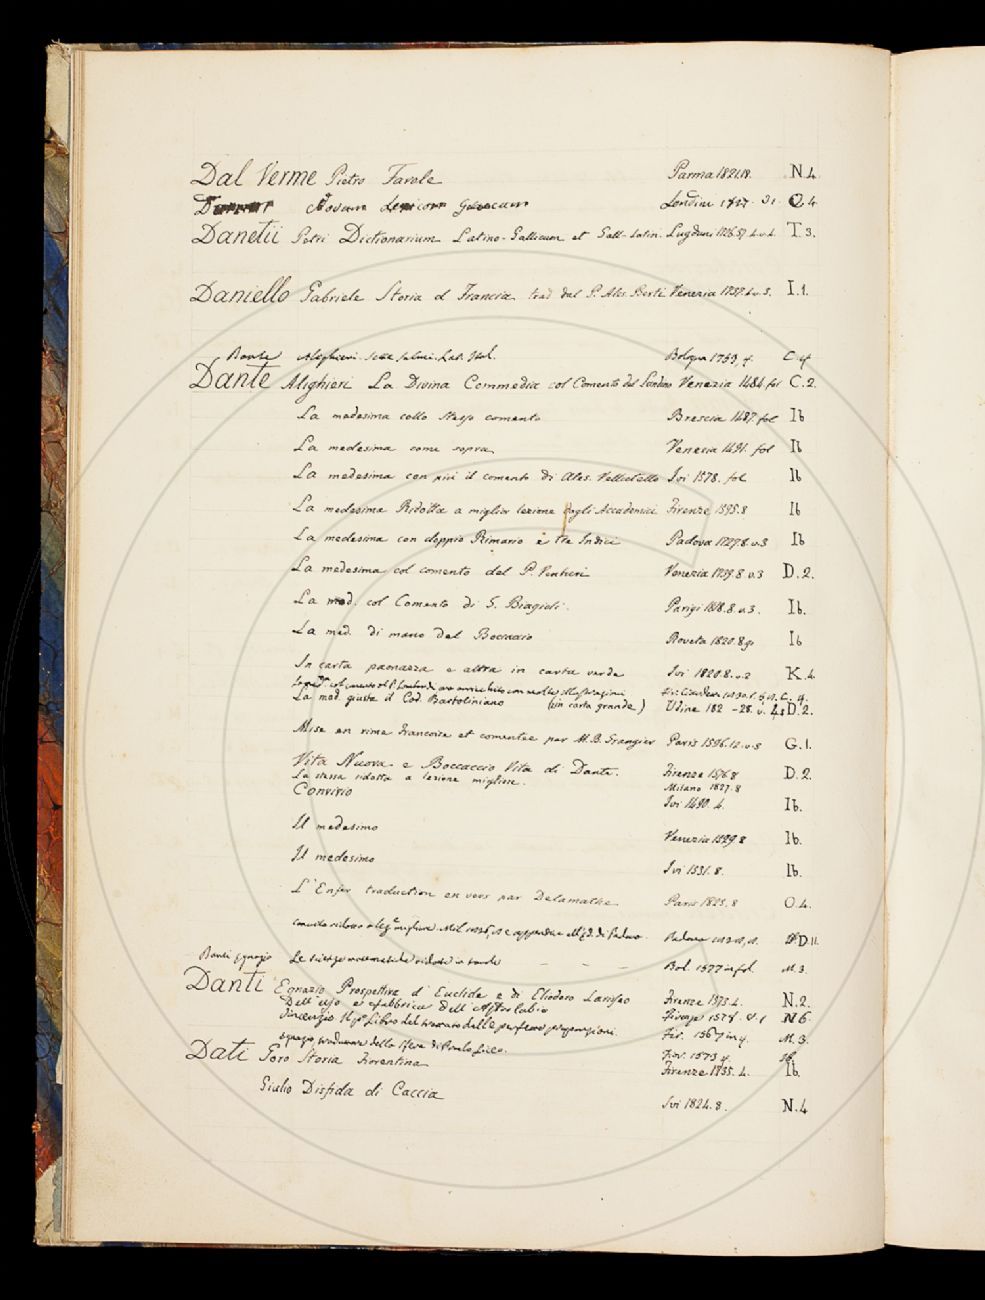 Dal Verme Pietro Favole Parma 1821.18. N.4
Novum Lexicon Graecum Londini 1727. v.1. Q.4
Danetii Petri Dictionarium Latino-Gallicum et Gall-Latin. Lugduni 1726.37.4.v.2. T.3.
Daniello Gabriele Storia d Francia trad dal P. Ales. Berti Venezia 1737.4.v.3. I.1.
Dante Alighieri Sette Salmi. Lat. Ital. Bologna 1753, 4. C.4
Dante Alighieri La Divina Commedia col Comento del Landino Venezia 1484. fol C.2.
La medesima collo stesso comento Brescia 1487. fol Ib
La medesima come sopra Venezia 1491. fol Ib
La medesima con più il comento di Ales. Vellutello Ivi 1578. fol Ib
La medesima Ridotta a miglior lezione dagli Accademici Firenze 1595.8 Ib
La medesima con doppio Rimario e tre Indici Padova 1727.8.v.3 Ib
La medesima col comento del P. Venturi Venezia 1739.8.v.3 D.2.
La med. col Comento di G. Biagioli. Parigi 1818.8.v.3. Ib.
La med. di mano del Boccacio Roveta 1820.8g. Ib
In carta paonazza e altra in carta verde Ivi 1820.8.v.2 K.4
La med. col comento del P. Lombardi ora arricchito con molte illustrazioni
La med. giusta il Cod. Bartoliniano (in carta grande) Udine 182 -28. v. D.2.
Mise en rime francoise et comentee par M.B. Grangier Paris 1596.12.v.3 G.1.
Vita Nuova e Boccaccio Vita di Dante. Firenze 1576.8 D.2.
La stessa ridotta a lezione migliore. Milano 1827.8
Convivio Ivi 1490. 4. Ib.
Il medesimo Venezia 1529.8 Ib.
Il medesimo Ivi 1531.8. Ib.
L'Enfer traduction en vers par Delamathe Paris 1823.8 O.4.
Convito ridotto a lez.e migliore. Mil. 1826, 8 e appendice di Padova. Padova D.II.
Danti Egnazio Le scienze matematiche ridotte in tavole - - - Bol. 1577 in fol. M.3.
Danti Egnazio Prospettiva d'Euclide e di Eliodoro Larisseo Firenze 1573.4. N.2.
Dell'uso e fabbrica dell'Astrolabio Firenze 1578. N6.
Vincenzio Il p.o Libro del trattato delle perfette proporzioni. Fir. 1567 in 4. M.3.
Egnazio, traduzione della Sfera di Proclo Liceo. Fir. 1573 4. Ib.
Dati Goro Storia Fiorentina Firenze 1835. 4. Ib.
Giulio Disfida di Caccia Ivi 1824.8. N.4